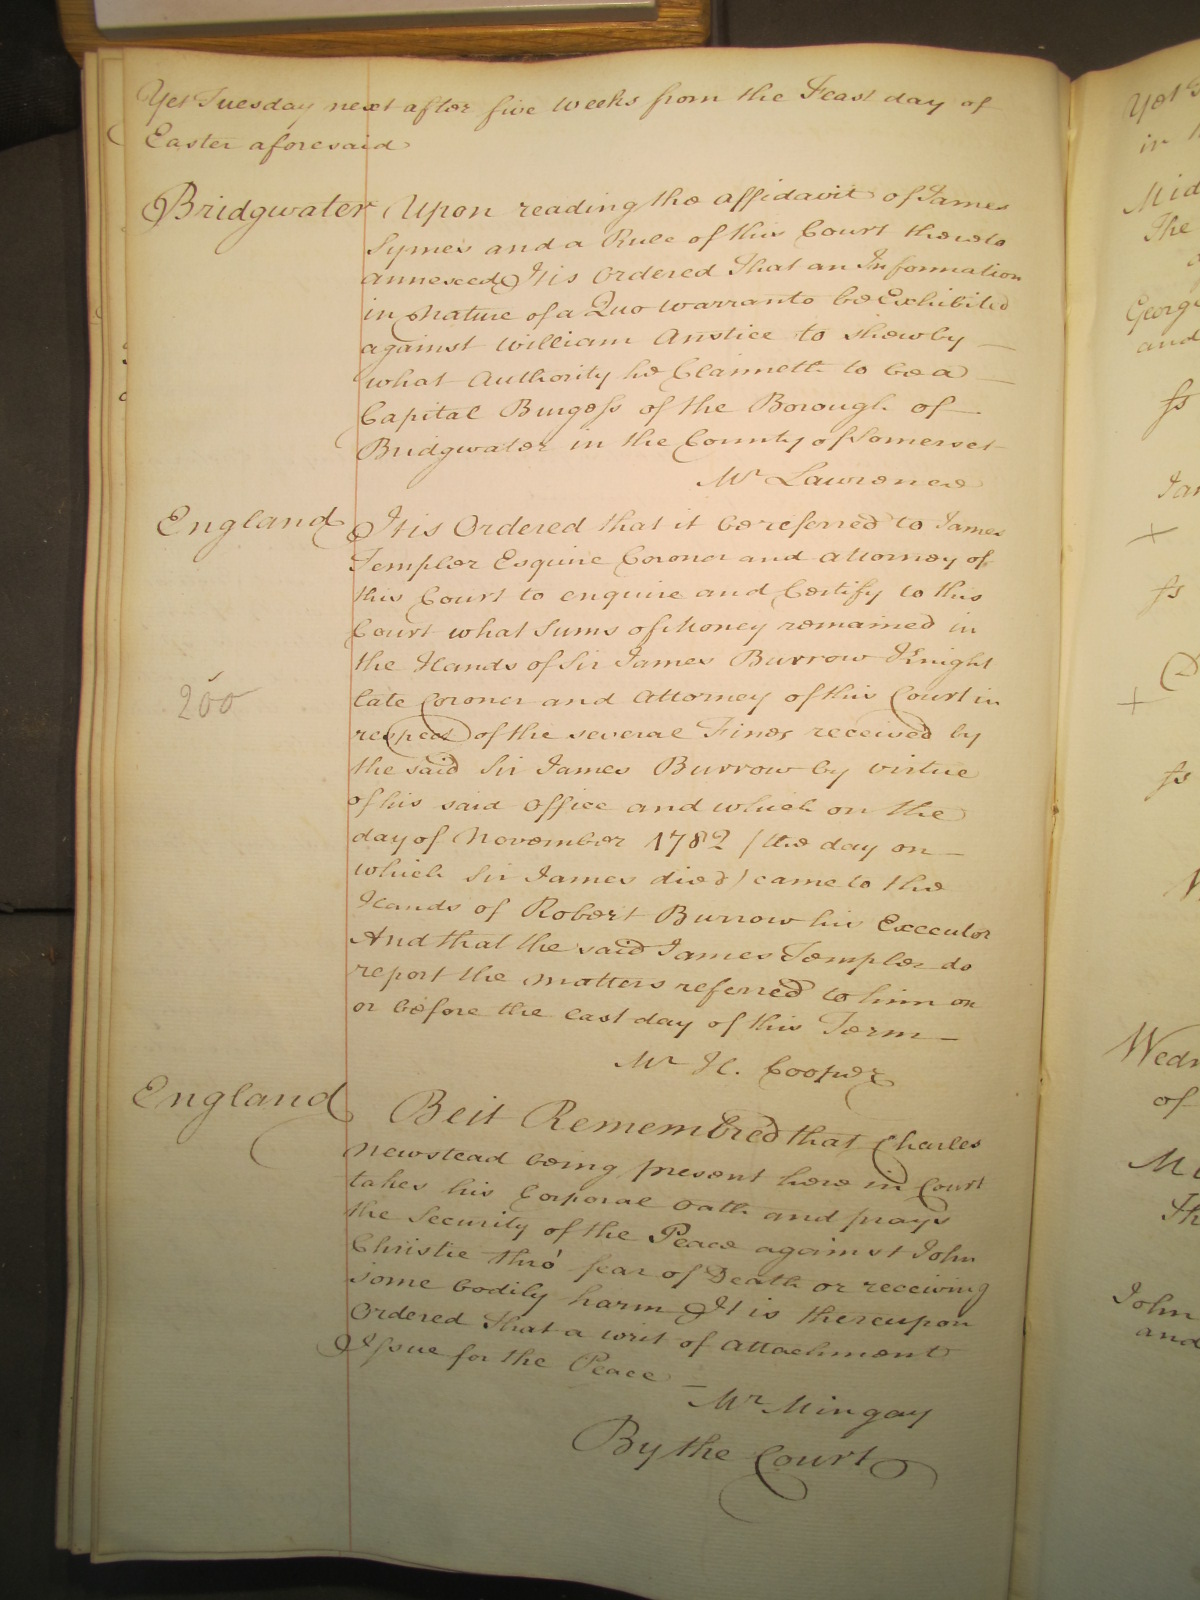 Yet Tuesday next after five weeks from the Feast day of
Easter aforesaid
Bridgwater Upon reading the affidavit of James
Symes and a Rule of this Court thereto
annexed It is Ordered That an Information
in Nature of a Quo warranto be Exhibited
against William Anstice to shew by
what Authority he Claimeth to be a
Capital Burgess of the Borough of
Bridgwater in the County of Somerset
Mr Lawrence
England It is Ordered that it be referred to James
Templer Esquire Coroner and Attorney of
this Court to enquire and Certify to this
Court what Sums of Money remained in
the Hands of Sir James Burrow Knight
late Coroner and Attorney of this Court in
respect of the several Fines received by
the said Sir James Burrow by virtue
of his said Office and which on the
day of November 1782 / the day on
which Sir James died / came to the
Hands of Robert Burrow his Executor
And that the said James Templer do
report the matters referred to him on
or before the last day of this Term
Mr H. Cooper
200
England Be it Remembred that Charles
Newstead being present here in Court
takes his Corporal Oath and prays
the Security of the Peace against John
Christie thro' fear of Death or receiving
some bodily harm It is thereupon
Ordered that a writ of Attachment
Issue for the Peace
Mr Mingay
By the Court